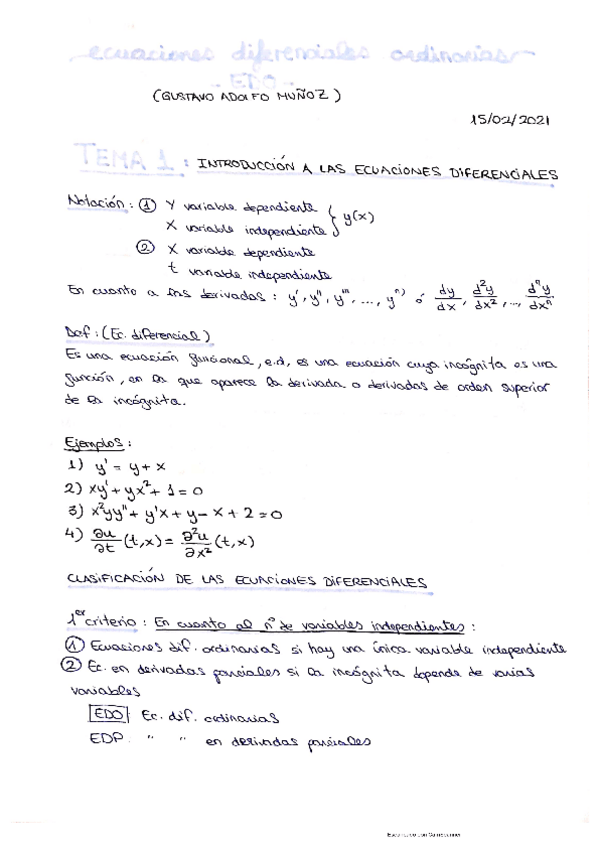 ecuaciones diferenciales ordinarias
- EDO -
(GUSTAVO ADOLFO MUÑOZ)
15/02/2021
TEMA 1: INTRODUCCIÓN A LAS ECUACIONES DIFERENCIALES
Notación: ① Y variable dependiente } y(x)
X variable independiente
② X variable dependiente
t variable independiente
En cuanto a las derivadas: y', y'', y''', ..., yⁿ⁾ ó dy/dx, d²y/dx², ..., dⁿy/dxⁿ
Def: (Ec. diferencial)
Es una ecuación funcional, e.d, es una ecuación cuya incógnita es una
función, en la que aparece la derivada o derivadas de orden superior
de la incógnita.
Ejemplos:
1) y' = y + x
2) xy' + yx² + 1 = 0
3) x²yy'' + y'x + y - x + 2 = 0
4) ∂u/∂t (t,x) = ∂²u/∂x² (t,x)
CLASIFICACIÓN DE LAS ECUACIONES DIFERENCIALES
1er criterio: En cuanto al nº de variables independientes:
① Ecuaciones dif. ordinarias si hay una única variable independiente
② Ec. en derivadas parciales si la incógnita depende de varias
variables
EDO Ec. dif. ordinarias
EDP " " en derivadas parciales
Escaneado con CamScanner